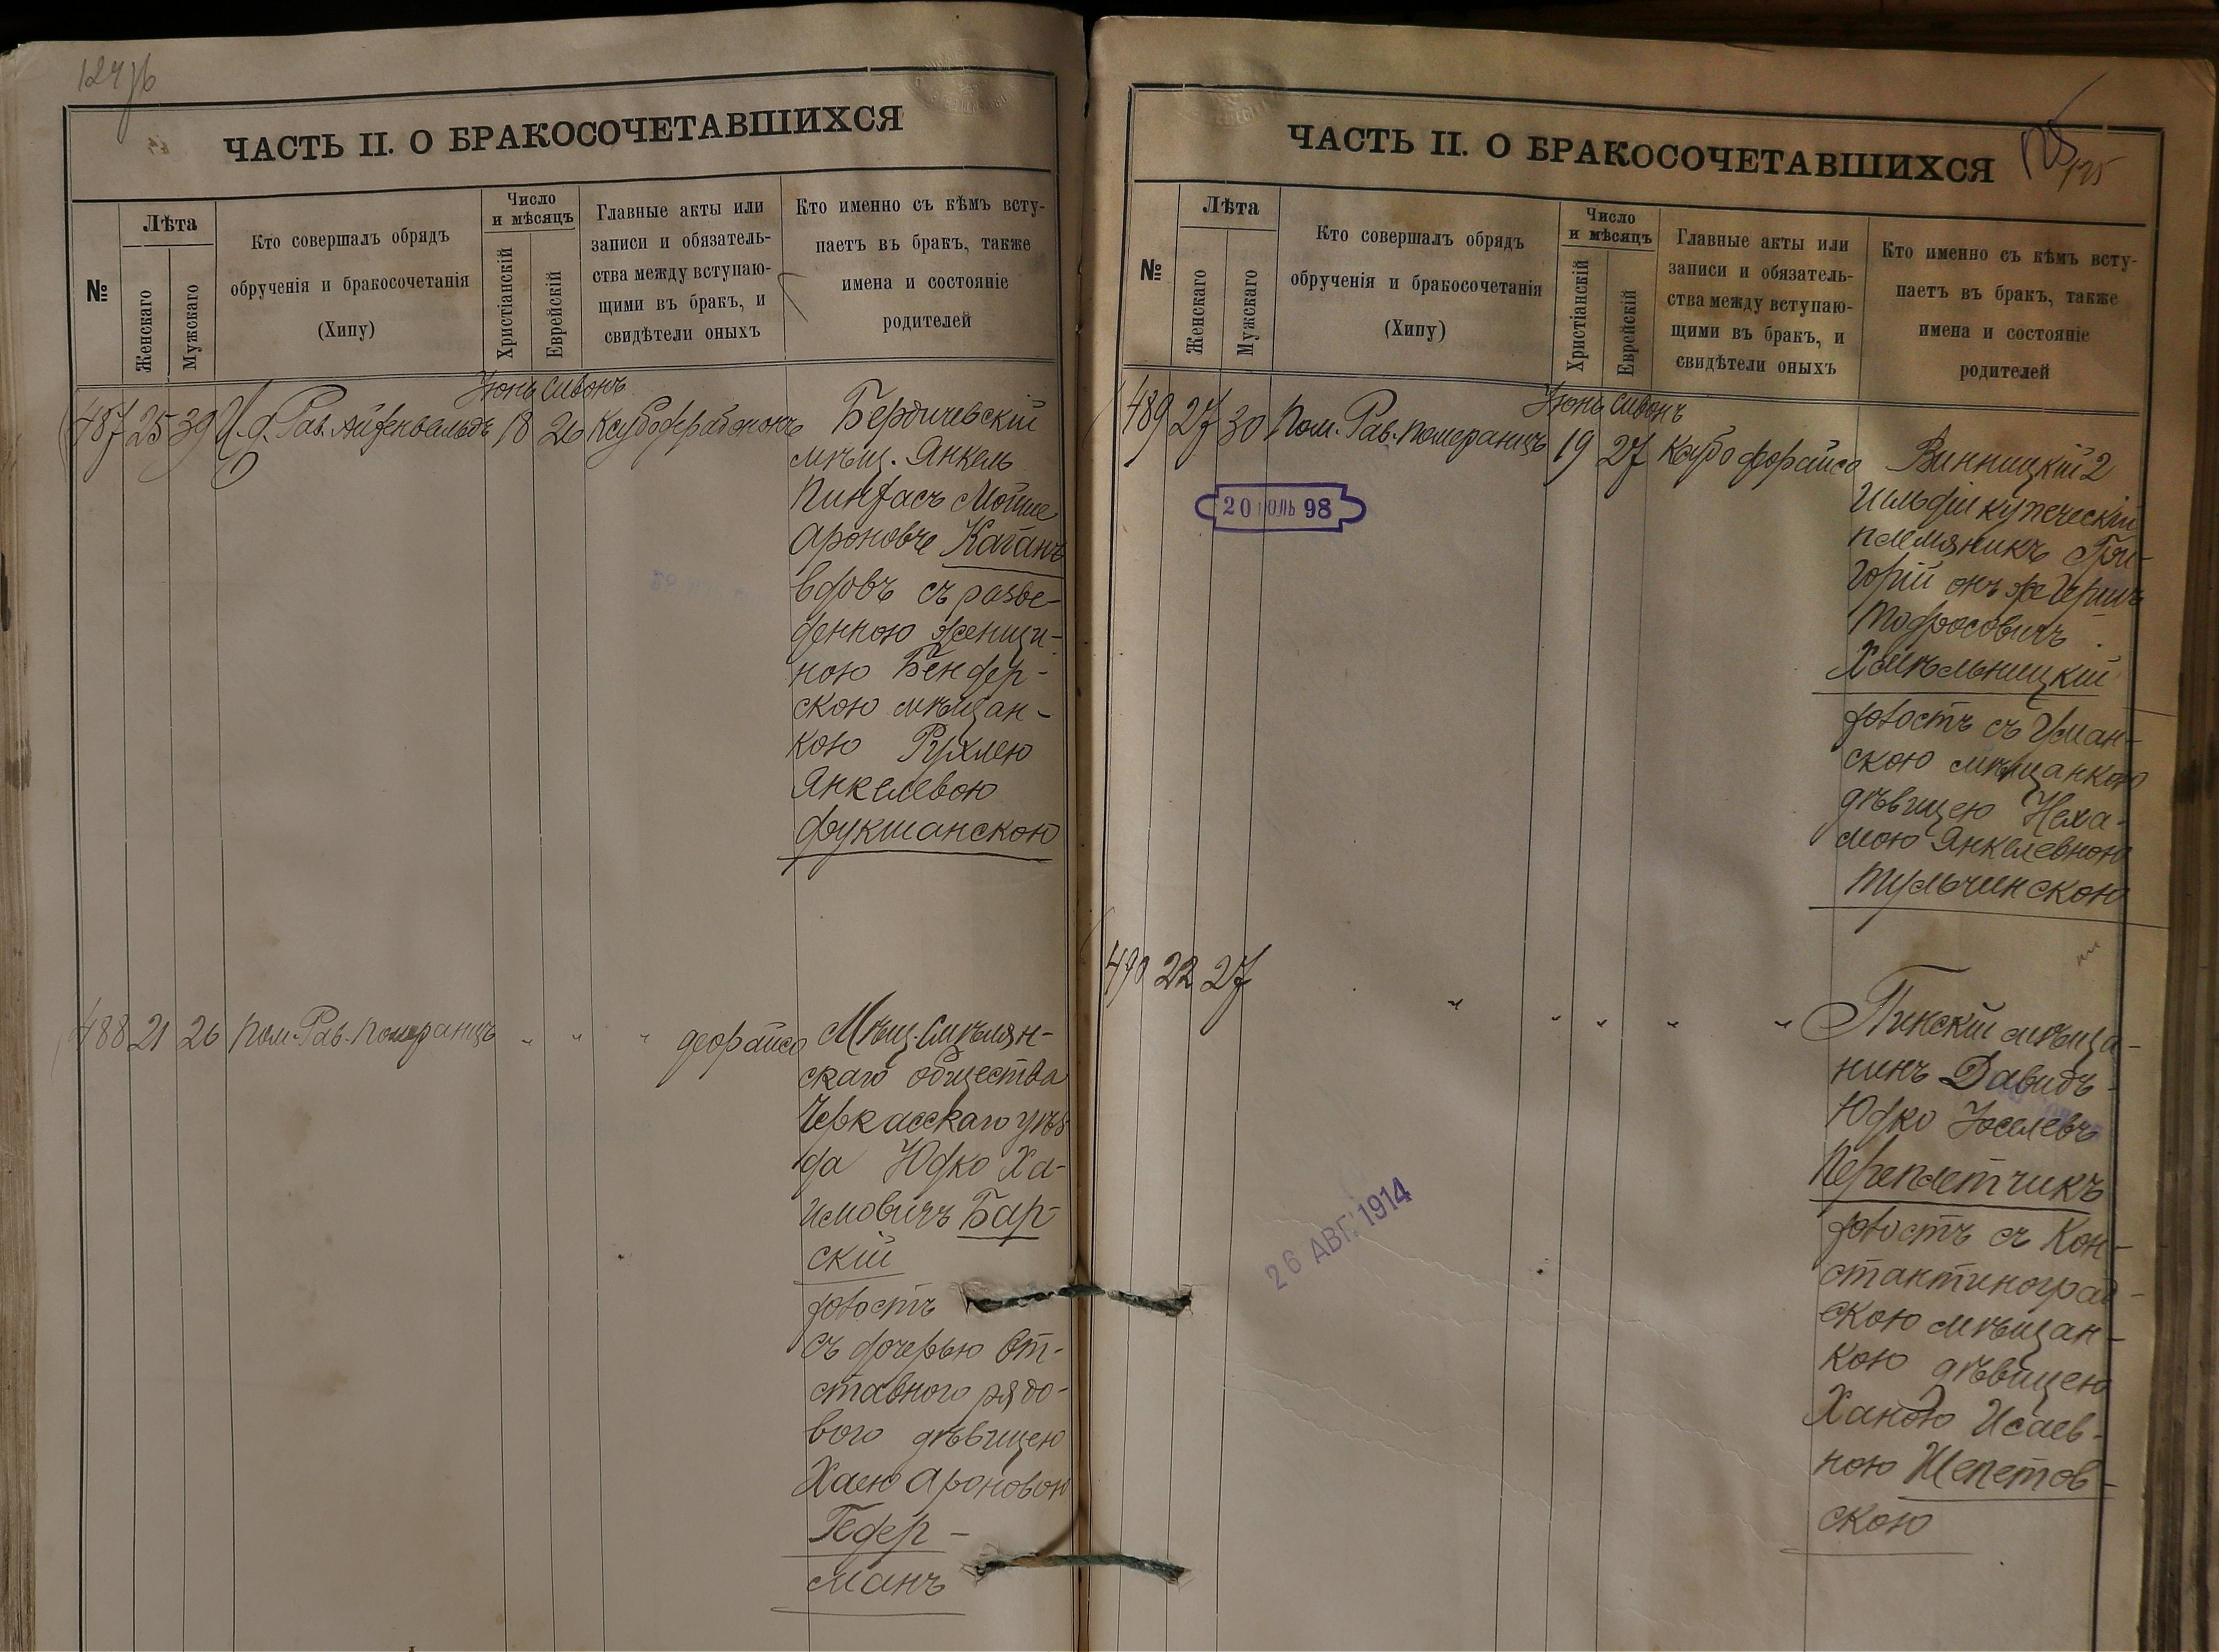 ЧАСТЬ II. О БРАКОСОЧЕТАВШИХСЯ
№
Лѣта
Женскаго
Мужскаго
Кто совершалъ обрядъ
обрученія и бракосочетанія
(Хипу)
Число
и мѣсяцъ
Христіанскій
Еврейскій
Главные акты или
записи и обязатель-
ства между вступаю-
щими въ бракъ, и
свидѣтели оныхъ
Кто именно съ кѣмъ всту-
паетъ въ бракъ, также
имена и состояніе
родителей
Іюнь Сивонъ
487 25 39 И.д. Рав. Айзенвальдъ 18 26
Бердичевскій
мѣщ. Янкель
Пинхасъ Мойше
Ароновъ Каганъ
вдовъ съ разве-
денною женщи-
ною Бендер-
скою мѣщан-
кою Рухлею
Янкелевою
Фукшанскою
488 21 26 Пом. Рав. Померанцъ " " " деорайсо
Мѣщ. Смѣлян-
скаго общества
Черкасскаго уѣз
да Юдко Ха-
имовичъ Бар-
скій
холостъ
съ дочерью От-
ставного рядо-
вого дѣвицею
Хаею Ароновою
Гедер-
манъ
ЧАСТЬ II. О БРАКОСОЧЕТАВШИХСЯ
125
125
№
Лѣта
Женскаго
Мужскаго
Кто совершалъ обрядъ
обрученія и бракосочетанія
(Хипу)
Число
и мѣсяцъ
Христіанскій
Еврейскій
Главные акты или
записи и обязатель-
ства между вступаю-
щими въ бракъ, и
свидѣтели оныхъ
Кто именно съ кѣмъ всту-
паетъ въ бракъ, также
имена и состояніе
родителей
Іюнь Сивонъ
489 27 30 Пом. Рав. Померанцъ 19 27 Ксубо деорайсо
20 ІЮЛЬ 98
Винницкій 2
Гильдіи купеческій
племяникъ Гри-
горій онъ же Гершъ
Тодросовичъ
Хмѣльницкій
холостъ съ Уман-
скою мѣщанкою
дѣвицею Неха-
мою Янкелевною
Тульчинскою
490 22 27 " " " " "
Пинскій мѣща-
нинъ Давидъ
Юдко Іоселевъ
Переплетчикъ
холостъ съ Кон-
стантиноград-
скою мѣщан-
кою дѣвицею
Ханою Исаев-
ною Шепетов-
скою
26 АВГ. 1914